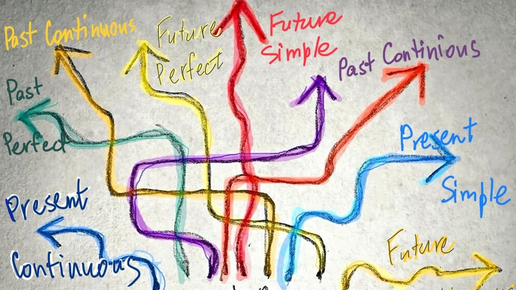 Past Continuous
Future
Perfect
Future
Simple
Past Continious
Past
Perfect
Present
Simple
Present
Continuous
Future